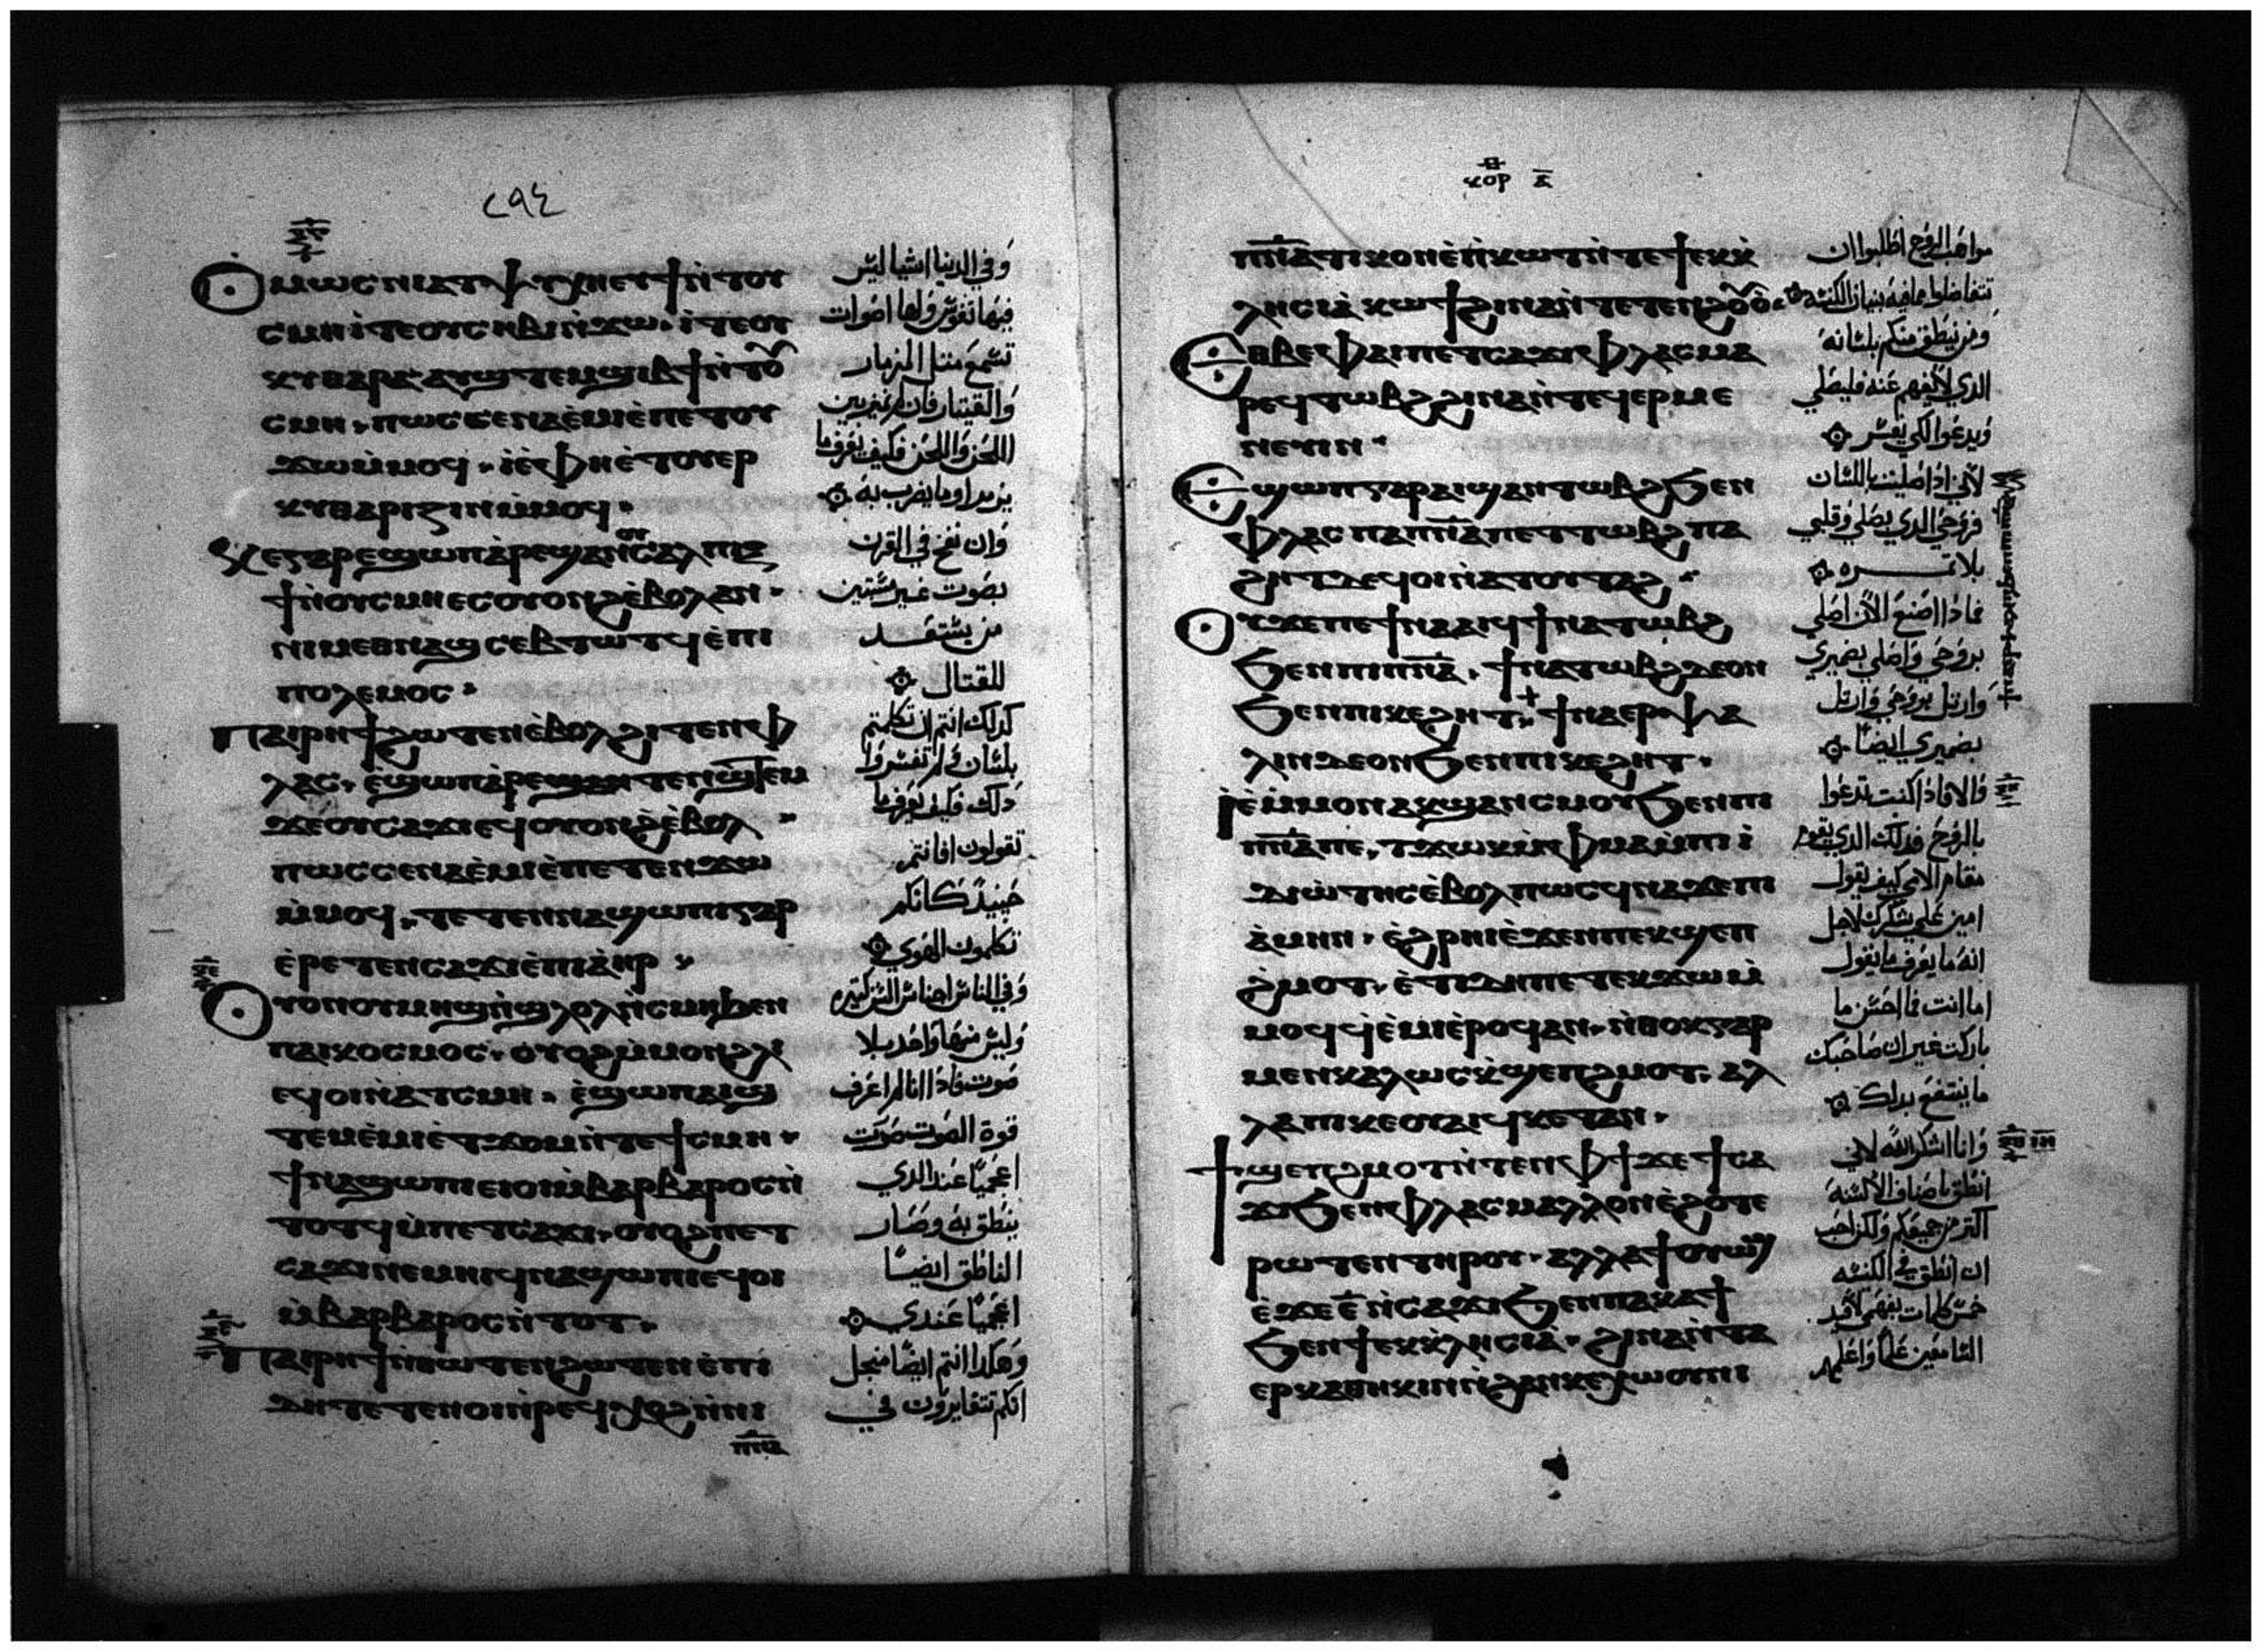 ⲟⲙⲱⲥ ⲛⲓⲁⲧⲯⲩⲭⲏ ⲉⲩϯ ⲛ̀ⲧⲟⲩ
ⲥⲙⲏ ⲓ̀ⲧⲉ ⲟⲩⲥⲏⲃⲓ ⲛ̀ϫⲱ. ⲓ̀ⲧⲉ ⲟⲩ
ⲕⲩⲑⲁⲣⲁ ⲁⲩϣⲧⲉⲙϣⲓⲃϯ ⲛ̀ⲧⲟⲩ
ⲥⲙⲏ. ⲡⲱⲥ ⲥⲉⲛⲁⲉ̀ⲙⲓ ⲉ̀ⲡⲉⲧⲟⲩ
ϫⲱ ⲙ̀ⲙⲟϥ. ⲓ̀ⲉ̀ ⲫⲏ ⲉ̀ⲧⲟⲩⲉⲣ
ⲕⲩⲑⲁⲣⲓⲍⲓⲛ ⲙ̀ⲙⲟϥ.
ⲕⲉ ⲅⲁⲣ ⲉϣⲱⲡ ⲁ̀ⲣⲉϣⲁⲛ ⲟⲩⲥⲁⲗⲡⲓⲅ
ϯ ⲛ̀ⲟⲩⲥⲙⲏ ⲉⲥⲟⲩⲟⲛϩ ⲉ̀ⲃⲟⲗ ⲁⲛ.
ⲛⲓⲙ ⲉⲑⲛⲁϣⲥⲉⲃⲧⲱⲧϥ ⲉ̀ⲡⲓ
ⲡⲟⲗⲉⲙⲟⲥ.
ⲡⲁⲓⲣⲏϯ ϩⲱⲧⲉⲛ ⲉ̀ⲃⲟⲗ ϩⲓⲧⲉⲛ ⲫ
ⲗⲁⲥ. ⲉϣⲱⲡ ⲁ̀ⲣⲉϣⲁⲛⲧⲉⲛϣⲧⲉⲙ
ϫⲉ ⲟⲩⲥⲁϫⲓ ⲉϥⲟⲩⲟⲛϩ ⲉ̀ⲃⲟⲗ
ⲡⲱⲥ ⲥⲉⲛⲁⲉ̀ⲙⲓ ⲉ̀ⲡⲉⲧⲉⲛϫⲱ
ⲙ̀ⲙⲟϥ. ⲧⲉⲧⲉⲛⲛⲁϣⲱⲡⲓ ⲅⲁⲣ
ⲉ̀ⲣⲉⲧⲉⲛⲥⲁϫⲓ ⲉ̀ⲡⲓⲁ̀ⲏⲣ
ⲟⲩⲟⲛ ⲟⲩⲙⲏϣ ⲛ̀ϣⲗⲟⲗ ⲛ̀ⲥⲙⲏ ϧⲉⲛ
ⲡⲁⲓⲕⲟⲥⲙⲟⲥ. ⲟⲩⲟϩ ⲙ̀ⲙⲟⲛ ϩⲗⲓ
ⲉϥⲟⲓ ⲛ̀ⲁⲧⲥⲙⲏ. ⲉ̀ϣⲱⲡ ⲁⲓϣ
ⲧⲉⲙⲉ̀ⲙⲓ ⲉ̀ⲧϫⲟⲙ ⲛ̀ⲧⲉ ϯⲥⲙⲏ.
ϯⲛⲁϣⲱⲡⲓ ⲉⲓⲟⲓ ⲙ̀ⲃⲁⲣⲃⲁⲣⲟⲥ ⲛ̀
ⲧⲟⲧϥ ⲙ̀ⲡⲉⲧⲥⲁϫⲓ. ⲟⲩⲟϩ ⲡⲉⲧ
ⲥⲁϫⲓ ⲛⲉⲙⲏⲓ ϥⲛⲁϣⲱⲡⲓ ⲉϥⲟⲓ
ⲙ̀ⲃⲁⲣⲃⲁⲣⲟⲥ ⲛ̀ⲧⲟⲧ.
ⲡⲁⲓⲣⲏϯ ⲛ̀ⲑⲱⲧⲉⲛ ϩⲱⲧⲉⲛ ⲉ̀ⲡⲓ
ⲇⲏ ⲧⲉⲧⲉⲛⲟⲓ ⲛ̀ⲣⲉϥⲭⲟϩ ⲛ̀ⲛⲓ
ⲡⲛ̅ⲁ̅
٢٩٤
وفي الدنيا اشيا ليس
فيها نفوس ولها اصوات
تسمع مثل المزمار
والقيثار فان لم تميز بين
اللحن واللحن فكيف يعرف ما
يزمر او ما يضرب به
وان نفخ في القرن
بصوت غير مستبين
من يستعد
للقتال
كدلك انتم ان تكلمتم
بلسان ولم تفسروا
دلك فكيف يعرف ما
تقولون فانتم
حينيد كانكم
تكلمون الهوي
وفي الناس اجناس السن كتيره
وليس منها واحد بلا
صوت فادا انا لم اعرف
قوة الصوت صرت
اعجميا عند الدي
ينطق به وصار
الناطق ايضا
اعجميا عندي
وهكدا انتم ايضا منجل
انكم تتغايرون في
ⲕⲟⲣ ⲁ̅
ⲡⲛ̅ⲁ̅ⲧⲓⲕⲟⲛ ⲉ̀ⲡ̀ⲕⲱⲧ ⲛ̀ⲧⲉ ϯⲉⲕⲕ̀
ⲗⲏⲥⲓⲁ̀ ⲕⲱϯ ϩⲓⲛⲁ ⲛ̀ⲧⲉⲧⲉⲛⲉⲣϩⲟⲩⲟ̀.
ⲉⲑⲃⲉ ⲫⲁⲓ ⲡⲉⲧⲥⲁϫⲓ ⲫⲗⲁⲥ ⲙⲁ
ⲣⲉϥⲧⲱⲃϩ ϩⲓⲛⲁ ⲛ̀ⲧⲉϥⲉⲣⲙⲉ
ⲛⲉⲩⲓⲛ.
ⲉϣⲱⲡ ⲅⲁⲣ ⲁⲓϣⲁⲛⲧⲱⲃϩ ϧⲉⲛ
ⲫⲗⲁⲥ ⲡⲁⲡⲛ̅ⲁ̅ ⲡⲉⲧⲧⲱⲃϩ ⲡⲁ
ϩⲏⲧ ⲇⲉ ϥⲟⲓ ⲛ̀ⲁⲧⲟⲩⲧⲁϩ.
ⲟⲩ ϫⲉ ⲡⲉϯⲛⲁⲁⲓϥ ϯⲛⲁⲧⲱⲃϩ
ϧⲉⲛ ⲡⲓⲡⲛ̅ⲁ̅. ϯⲛⲁⲧⲱⲃϩ ⲇⲉ ⲟⲛ
ϧⲉⲛ ⲡⲓⲕⲉϩⲏⲧ. ϯⲛⲁⲉⲣⲯⲁ
ⲗⲓⲛ ⲇⲉ ⲟⲛ ϧⲉⲛ ⲡⲓⲕⲉϩⲏⲧ.
ⲓⲉ̀ ⲙ̀ⲙⲟⲛ ⲁⲕϣⲁⲛⲥⲙⲟⲩ ϧⲉⲛ ⲡⲓ
ⲡⲛ̅ⲁ̅ ⲡⲉ. ⲧϫⲱⲕ ⲙ̀ⲫⲙⲁ ⲙ̀ⲡⲓ ⲓ̀
ⲇⲓⲱ̀ⲧⲏⲥ ⲉ̀ⲃⲟⲗ ⲡⲱⲥ ϥⲛⲁϫⲉ ⲡⲓ
ⲁ̀ⲙⲏⲛ. ⲉ̀ϩⲣⲏⲓ ⲉ̀ϫⲉⲛ ⲡⲉⲕϣⲉⲡ
ϩ̀ⲙⲟⲧ. ⲉ̀ⲡⲓⲇⲏ ⲡⲉⲧⲉⲕϫⲱ ⲙ̀
ⲙⲟϥ ϥ̀ⲉ̀ⲙⲓ ⲉ̀ⲣⲟϥ ⲁⲛ. ⲛ̀ⲑⲟⲕ ⲅⲁⲣ
ⲙⲉⲛ ⲕⲁⲗⲱⲥ ⲕ̀ϣⲉⲡϩⲙⲟⲧ. ⲁⲗ
ⲗⲁ ⲡⲓⲕⲉⲟⲩⲁⲓ ϥⲕⲉⲧ ⲁⲛ.
ϯϣⲉⲡϩⲙⲟⲧ ⲛ̀ⲧⲉⲛ ⲫϯ ϫⲉ ϯⲥⲁ
ϫⲓ ϧⲉⲛ ⲫⲗⲁⲥ ⲙⲁⲗⲗⲟⲛ ⲉ̀ϩⲟⲧⲉ
ⲣⲱⲧⲉⲛ ⲧⲏⲣⲟⲩ. ⲁⲗⲗⲁ ϯⲟⲩⲱϣ
ⲉ̀ϫⲉ ⲉ̅ ⲛ̀ⲥⲁϫⲓ ϧⲉⲛ ⲡⲁⲕⲁϯ
ϧⲉⲛ ϯⲉⲕⲕ̀ⲗⲏⲥⲓⲁ̀. ϩⲓⲛⲁ ⲛ̀ⲧⲁ
ⲉⲣⲕⲁⲑⲏⲕⲓⲛ ⲛ̀ϩⲁⲛⲕⲉⲭⲱⲟⲩⲛⲓ
مواهب الروح اطلبوا ان
تتفاضلوا بما فيه بنيان الكنيسه
ومن ينطق منكم بلسانه
الدي لا يفهم عنه فليصلي
ويدعوا لكي يفسر
لاني ادا صليت باللسان
فروحي الدي يصلي وقلبي
بلا تمره
فمادا اصنع الان اصلي
بروحي واصلي بضميري
وارتل بروحي وارتل
بضميري ايضا
والا فادا كنت تدعوا
بالروح فدلك الدي يقوم
مقام الامي كيف يقول
امين علي شكرك لاجل
انه ما يعرف ما يقول
اما انت فما احسن ما
باركت غير ان صاحبك
ما ينتفع بدلك
وانا اشكر الله لاني
انطق باصناف الالسنه
اكتر من جميعكم ولكن احب
ان انطق في الكنيسه
خمس كلمات بفهمي لافيد
السامعين علما واعلمهم